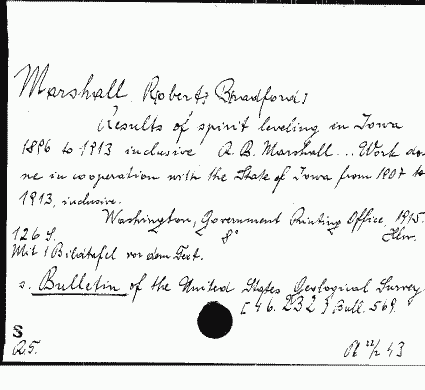 Marshall, Robert Bradford:
Results of spirit leveling in Iowa
1896 to 1913 inclusive R. B. Marshall... Work do
ne in cooperation with the State of Iowa from 1907 to
1913, inclusive.
Washington, Government Printing Office, 1915.
126 S. 8° Hlw.
Mit 1 Bildtafel vor dem Text.
s. Bulletin of the United States Geological Survey
[46. 232] Bull. 569.
S
R5. 22/2 43